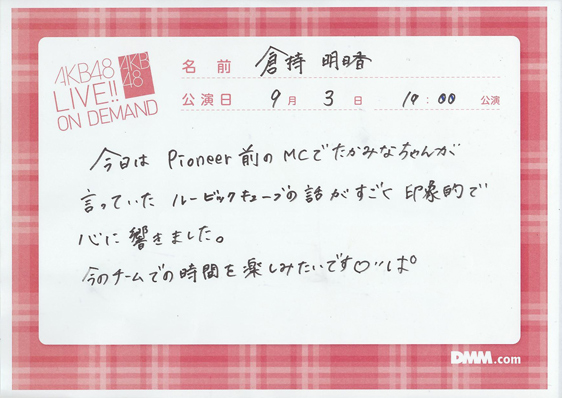 AKB48
LIVE!!
ON DEMAND
AKB
48
名前 倉持 明日香
公演日 9月 3日 19:00 公演
今日は Pioneer 前の MCでたかみなちゃんが
言っていた ルービックキューブの話がすごく 印象的で
心に響きました。
今のチームでの時間を楽しみたいです♡"ぱ°
DMM.com